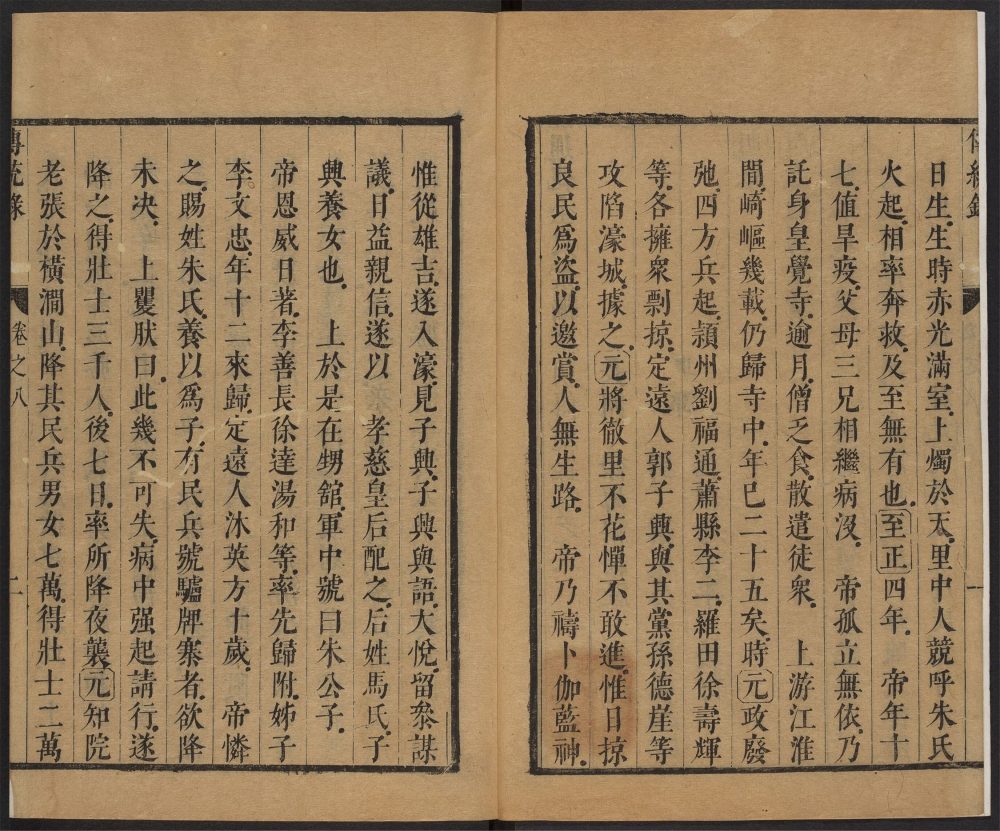 日生生時赤光滿室上燭於天里中人競呼朱氏
火起相率奔救及至無有也至正四年 帝年十
七值旱疫父母三兄相繼病沒 帝孤立無依乃
託身皇覺寺逾月僧乏食散遣徒衆 上游江淮
間崎嶇幾載仍歸寺中年已二十五矣時元政廢
弛四方兵起頴州劉福通蕭縣李二羅田徐壽輝
等各擁衆剽掠定遠人郭子興與其黨孫德崖等
攻陷濠城據之元將徹里不花憚不敢進惟日掠
良民爲盜以邀賞人無生路 帝乃禱卜伽藍神
惟從雄吉遂入濠見子興子興與語大悅留叅謀
議日益親信遂以 孝慈皇后配之后姓馬氏子
興養女也 上於是在甥舘軍中號曰朱公子
帝恩威日著李善長徐達湯和等率先歸附姊子
李文忠年十二來歸定遠人沐英方十歲 帝憐
之賜姓朱氏養以爲子有民兵號驢牌寨者欲降
未决 上矍肰曰此幾不可失病中强起請行遂
降之得壯士三千人後七日率所降夜襲元知院
老張於橫澗山降其民兵男女七萬得壯士二萬
傳統錄 卷之八 二